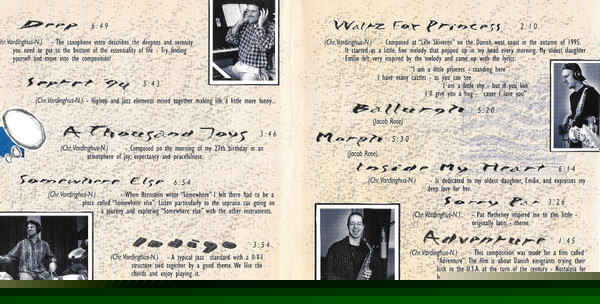 Deep 6:49
(Chr.Vordinghus-N.) - The saxophone intro describes the deepnes and serenity
you need to get to the bottom of the essentiality of life - Try finding
yourself and move into the composition!
5:43
(Chr.Vordinghus-N.) - Hiphop and jazz elements mixed together making life a little more funny...
A Thousand Joys 3:46
(Chr.Vordinghus-N.) - Composed on the morning of my 27th birthday in an
atmosphere of joy, expectancy and peacefulness.
Somewhere Else 6:54
(Chr.Vordinghus-N.) - When Bernstein wrote "Somewhere" I felt there had to be a
place called "Somewhere else". Listen particularly to the soprano sax going on
a journey and exploring "Somewhere else" with the other instruments.
Indigo 3:54
(Chr.Vordinghus-N.) - A typical jazz standard with a II-V-I
structure tied together by a good theme. We like the
chords and enjoy playing it.
Waltz For Princess 2:10
(Chr.Vordinghus-N.) - Composed at "Lille Skiveren" on the Danish west coast in the autumn of 1995.
It started as a little, fine melody that popped up in my head every morning. My oldest daughter
Emilie felt very inspired by the melody and came up with the lyrics:
"I am a little princess - standing here
I have many castles - as you can see
I am a little shy - but if you like
I'll give you a hug - 'cause I love you"
5:20
(Jacob Rose)
5:30
(Jacob Rose)
Inside My Heart 6:14
(Chr.Vordinghus-N.) - Is dedicated to my oldest daughter, Emilie, and expresses my
deep love for her.
Sorry Pat 3:26
(Chr.Vordinghus-N.) - Pat Metheney inspired me to this little -
originally latin - theme.
Adventure 1:45
(Chr.Vordinghus-N.) - This composition was made for a film called
"Adventure". The film is about Danish emigrants trying their
luck in the U.S.A. at the turn of the century - Nostalgia for